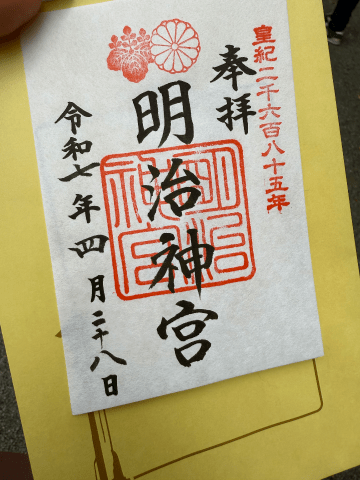 皇紀二千六百八十五年
奉拝
明治神宮
明治神宮
令和七年四月二十八日